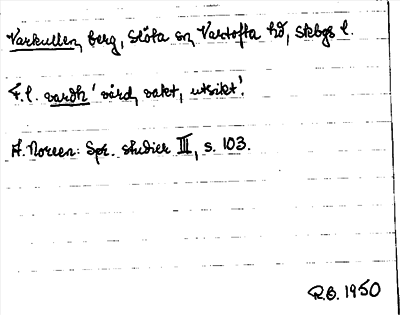 Varkullen, berg, Slöta sn, Vartofta hd, Skbgs l.
F.l. vardh 'vård, vakt, utsikt'.
A. Noreen: Spr. studier III, s. 103.
R.O. 1950